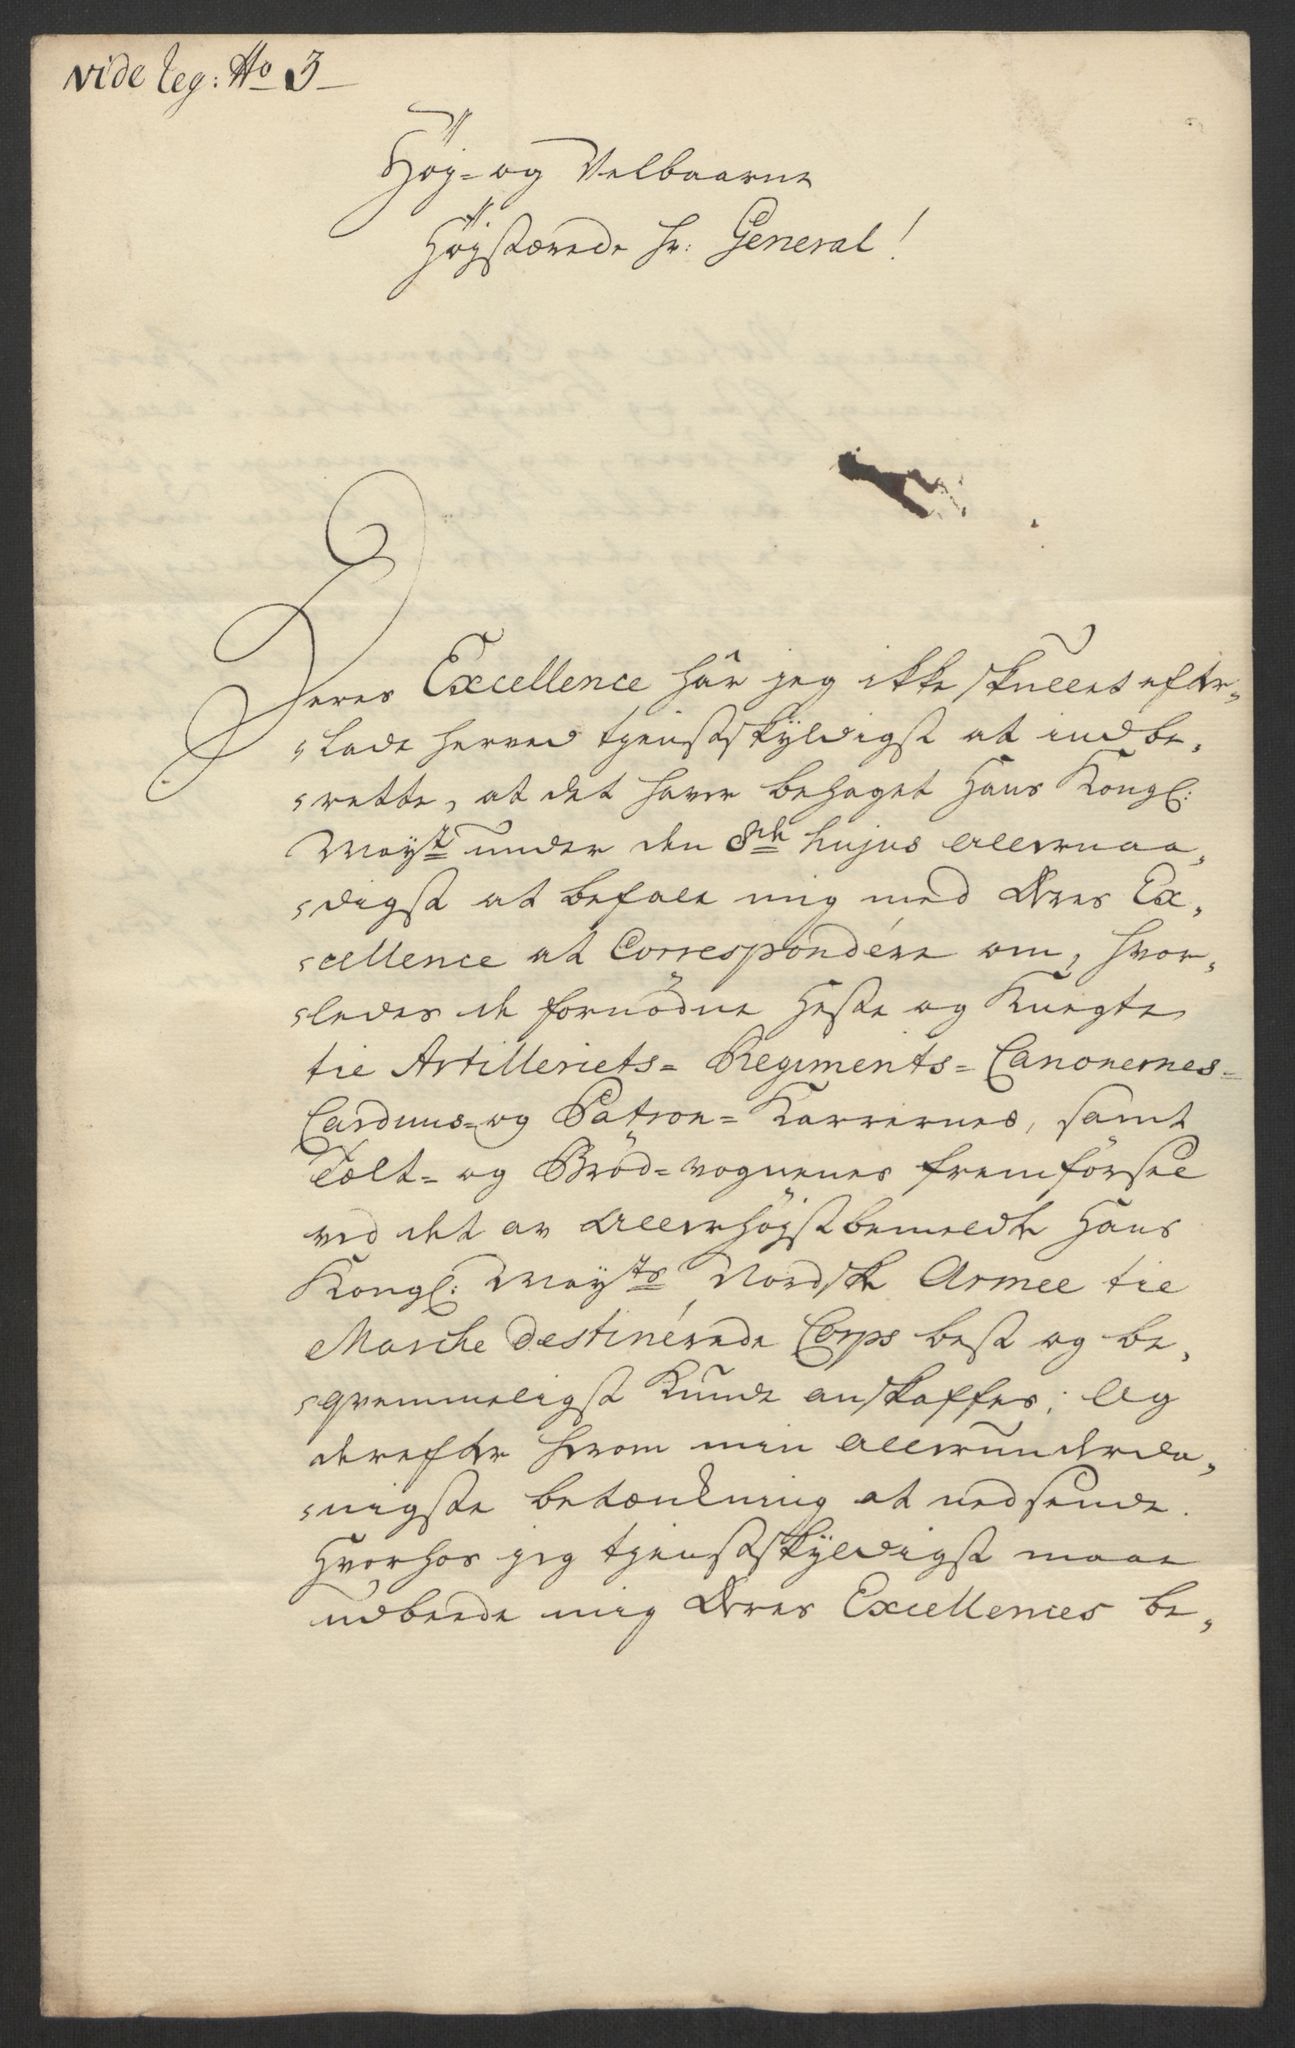 vide leg: No 3
Høÿ- og Velbaarne
Høÿstærede hr: General!
Deres Excellence har jeg ikke skullet efter-
lade herved tjenstskyldigst at indbe-
rette, at det haver behaget Hans Kongl:
Mayt under den 8de hujus Allernaa-
digst at befale mig med Deres Ex-
cellence at Correspondére om, hvor-
ledes de fornödne Heste og Knegte
til Artilleriets- Regiments- Canonernes-
Carduus- og Patron- Karrernes, samt
Tælt- og Bröd-vognenes fremförsel
ved det av Allerhöjstbemeldte Hans
Kongl: Mayts Nordske Armee til
Marche destinérede Corps best og be-
qvemmeligst kunde anskaffes; Og
derefter herom min Allerunderda-
nigste betænkning at nedsende.
Hvorhos jeg tjenstskyldigst maae
udbeede mig Deres Excellences be-